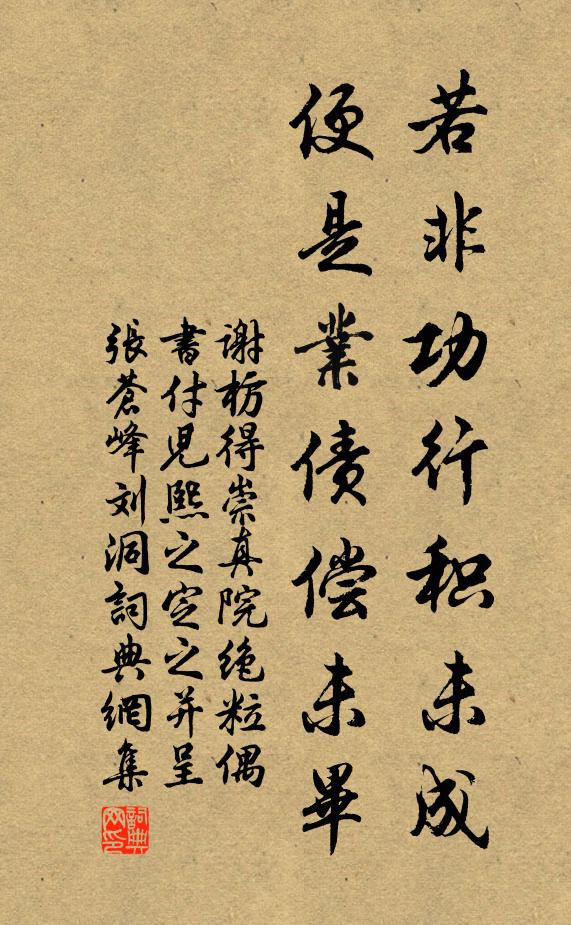 若非功行积未成
便是業债偿未畢
谢枋得崇真院绝粒偶
書付児熙之定之并呈
張蒼峰刘洞詞典網集
詞典网印